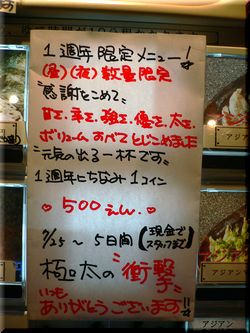 1週年限定メニュー!
(昼)(夜)数量限定
感謝をこめて
甘さ、辛さ、強さ、優しさ、太さ、
ボリュームすべてとじこめました
元気の出る一杯です
1週年にちなみ1コイン
500えん
7/25~5日間(現金でスタッフまで)
極太の"衝撃"
いつも
ありがとうございます!!
アジアン
アジアン